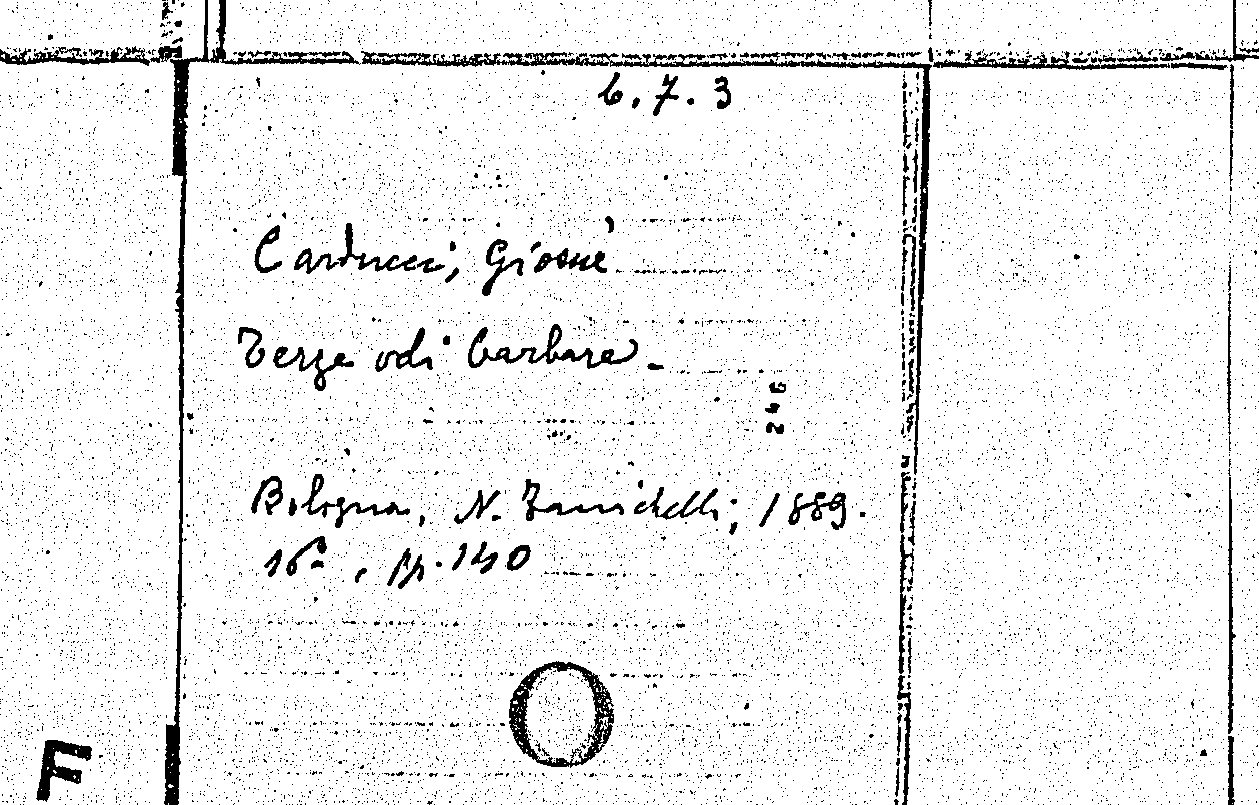 6.7.3
Carducci, Giosuè
Terze odi barbare.
246
Bologna, N. Zanichelli, 1889.
16º, pp. 140
F